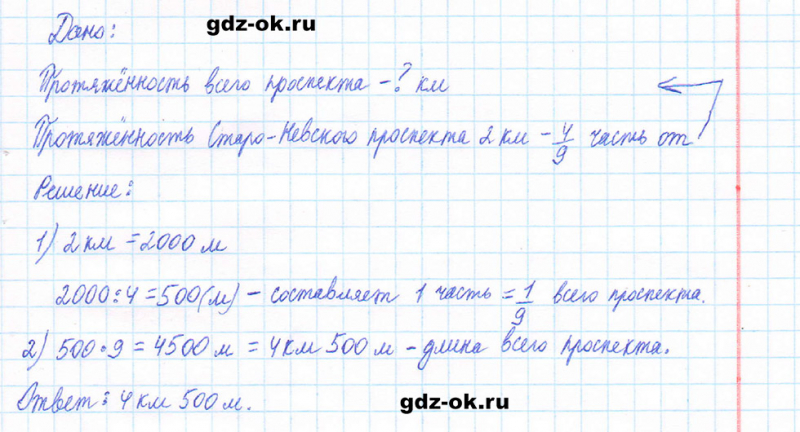 Дано:
gdz-ok.ru
Протяжённость всего проспекта - ? км
Протяжённость Старо-Невского проспекта 2 км - 4/9 часть от
Решение:
1) 2 км = 2000 м
2000 : 4 = 500 (м) - составляет 1 часть = 1/9 всего проспекта.
2) 500 · 9 = 4500 м = 4 км 500 м - длина всего проспекта.
Ответ: 4 км 500 м.
gdz-ok.ru